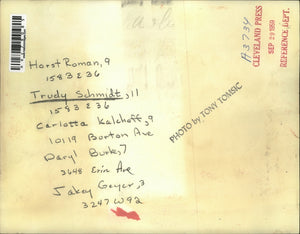 Horst Roman, 9
1583 E 36
Trudy Schmidt, 11
1583 E 36
Carlotta Kalchoff, 9
10119 Burton Ave
Daryl Burks, 7
3648 Erin Ave
Jakey Geyer, 3
3247 W 92
PHOTO by TONY TOMSIC
A3734
CLEVELAND PRESS
SEP 20 1959
REFERENCE DEPT.